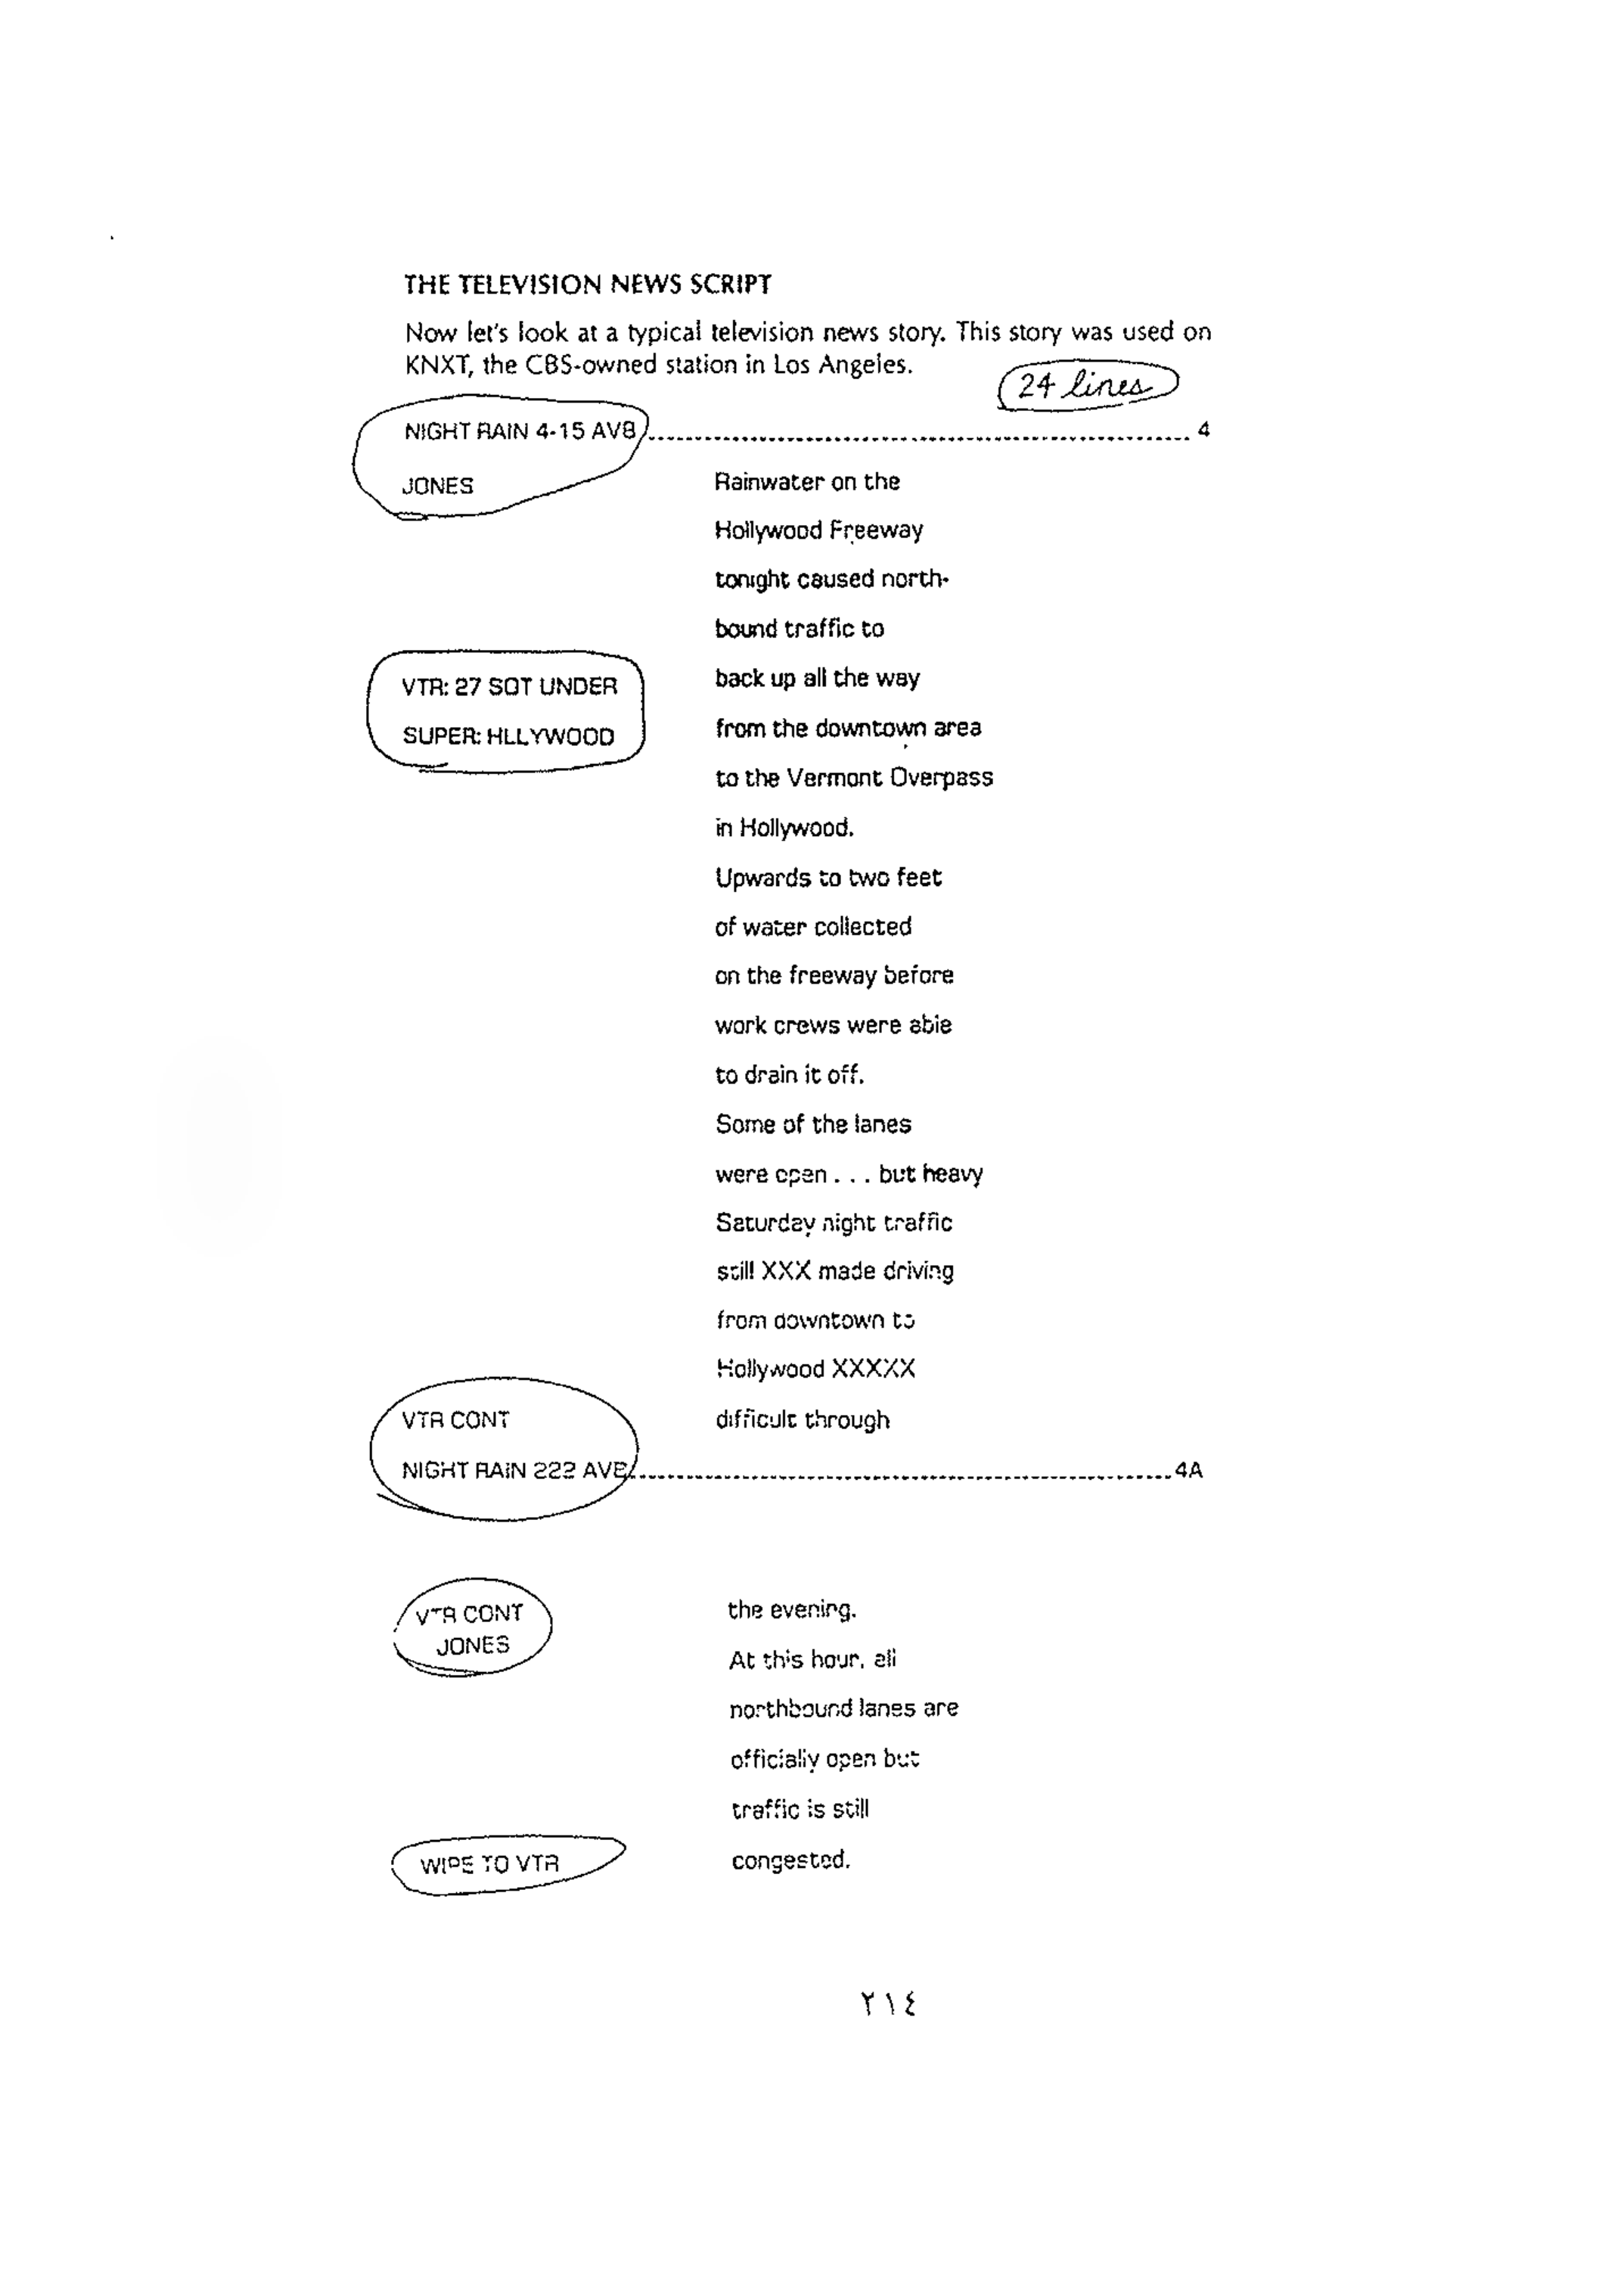 THE TELEVISION NEWS SCRIPT
Now let's look at a typical television news story. This story was used on
KNXT, the CBS-owned station in Los Angeles.
24 lines
NIGHT RAIN 4-15 AVB 4
JONES Rainwater on the
Hollywood Freeway
tonight caused north-
bound traffic to
VTR: 27 SOT UNDER back up all the way
SUPER: HLLYWOOD from the downtown area
to the Vermont Overpass
in Hollywood.
Upwards to two feet
of water collected
on the freeway before
work crews were able
to drain it off.
Some of the lanes
were open . . . but heavy
Saturday night traffic
still XXX made driving
from downtown to
Hollywood XXXXX
VTR CONT difficult through
NIGHT RAIN 222 AVB 4A
VTR CONT the evening.
JONES
At this hour, all
northbound lanes are
officially open but
traffic is still
WIPE TO VTR congested.
٢١٤